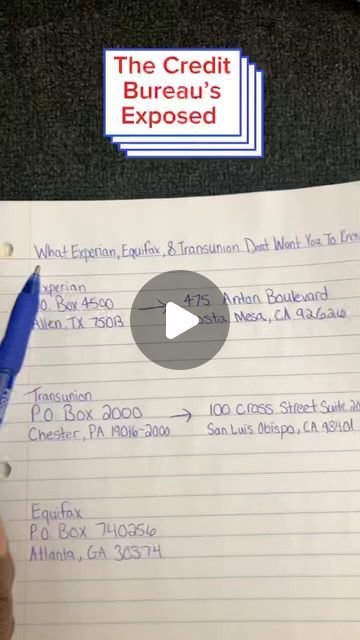 The Credit
Bureau's
Exposed
What Experian, Equifax, & Transunion Dont Want You To Know
Experian
P.O. Box 4500 → 475 Anton Boulevard
Allen, TX 75013 Costa Mesa, CA 92626
Transunion
P.O. Box 2000 → 100 Cross Street Suite
Chester, PA 19016-2000 San Luis Obispo, CA 93401
Equifax
P.O. Box 740256
Atlanta, GA 30374